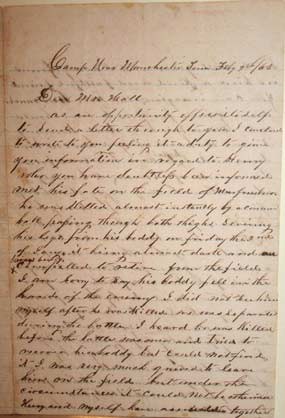 Camp Near Manchester Tenn Feby 9th/63
Dear Mrs Hall
as an opportunity itself
to send a letter through to you I
to write to you feeling it a duty to give
you information in regard to Henry
who you have doubtless been informed
met his fate on the field of Murfreesboro
he was killed almost instantly by a cannon
ball passing through both thighs
his legs from his boddy on friday the 2nd
of it being almost dark and
compelled to retire from the field
I am sorry to say his boddy fell in the
hands of the enemy I did not see him
myself after he was killed we was separated
during the battle I heard he was killed
before the battle was over and tried to
recover his boddy but could not find
it I was very much grieved to leave
him on the field but under the
circumstances it could not be otherwise
Henry and myself have together